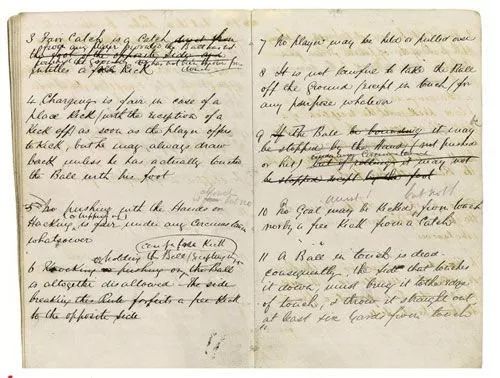 3 Fair Catch is a Catch
from any player provided the Ball has not
touched the ground or has not been thrown from
touch
entitles a free Kick
4 Charging is fair in case of a
place Kick (with the exception of a
Kick off) as soon as the player offers
to kick, but he may always draw
back unless he has actually touched
the Ball with his foot
5 No pushing with the Hands or
Hacking or tripping up is fair under any circumstances
whatsoever
holding the Ball
6 Knocking or pushing on the Ball
is altogether disallowed. The side
breaking this Rule forfeits a free Kick
to the opposite side
7 No player may be held or pulled over
8 It is not lawful to take the Ball
off the Ground (except in touch) for
any purpose whatever
9 If the Ball be bouncing it may be
stopped by the Hand (not pushed
or hit) but if rolling it may not
be stopped except by the foot
10 No Goal may be Kicked from touch
nor by a free Kick from a Catch
11 A Ball in touch is dead
consequently the side that touches
it down, must bring it to the edge
of touch, & throw it straight out
at least six yards from touch